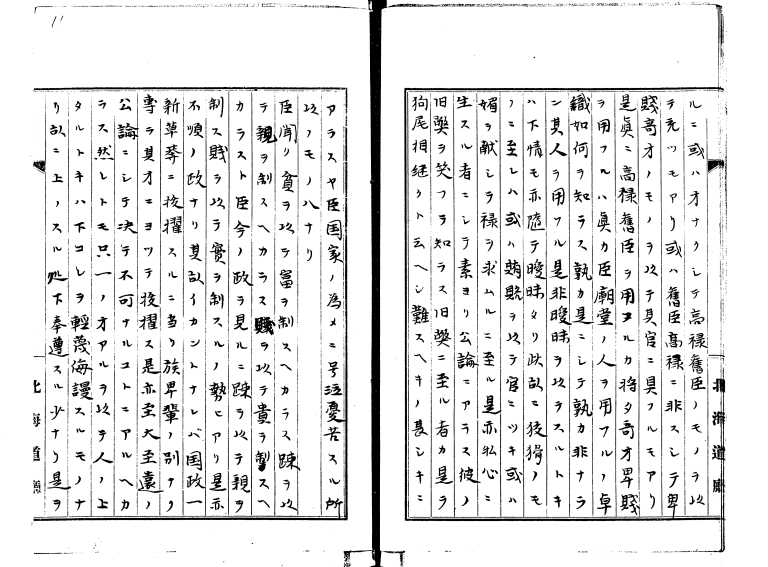 ルニ或ハオナクシテ高禄舊臣ノモノヲ以
テ充ツモアリ或ハ舊臣高禄ニ非スシテ卑
賤奇才ノモノヲ以テ其官ニ具フルモアリ
是眞ニ高禄舊臣ヲ用ユルカ将タ奇才卑賤
ヲ用フルハ眞カ臣廟堂ノ人ヲ用フルノ卓
識如何ヲ知ラス孰カ是ニシテ孰カ非ナラ
ン其人ヲ用フル是非曖昧ヲ以テラスルトキ
ハ下情モ亦隨テ曖昧タリ此故ニ狡猾ノモ
ノニ至レハ或ハ賄賂ヲ以テ官ニツキ或ハ
媚ヲ献シテ禄ヲ求ムルニ至ル是亦私心ニ
生スル者ニシテ素ヨリ公論ニアラス彼ノ
旧弊ヲ笑フヲ知ラス旧弊ニ至ル者カ是ヲ
狗尾相継クト云ヘシ難スヘキノ甚シキニ
北海道廳
アラスヤ臣国家ノ為メニ号泣憂苦スル所
以ノモノハナリ
臣聞ク貧ヲ以テ富ヲ制スヘカラス疎ヲ以
テ親ヲ制スヘカラス賤ヲ以テ貴ヲ制スヘ
カラスト臣今ノ政ヲ見ルニ疎ヲ以テ親ヲ
制ス賤ヲ以テ貴ヲ制スルノ勢ヒアリ是亦
不順ノ政ナリ其故イカントナレバ国政一
新草莽ニ抜擢スルニ当リ族卑輩ノ別ナク
専ラ其才ニヨツテ抜擢ス是亦至大至遠ノ
公論ニシテ決テ不可ナルコトニアルヘカ
ラス然レトモ只一ノ才アルヲ以テ人ノ上
タルトキハ下コレヲ輕蔑侮謾スルモノナ
リ故ニ上ノスル処下奉遵スル少ナリ是ヲ
北海道廳
11